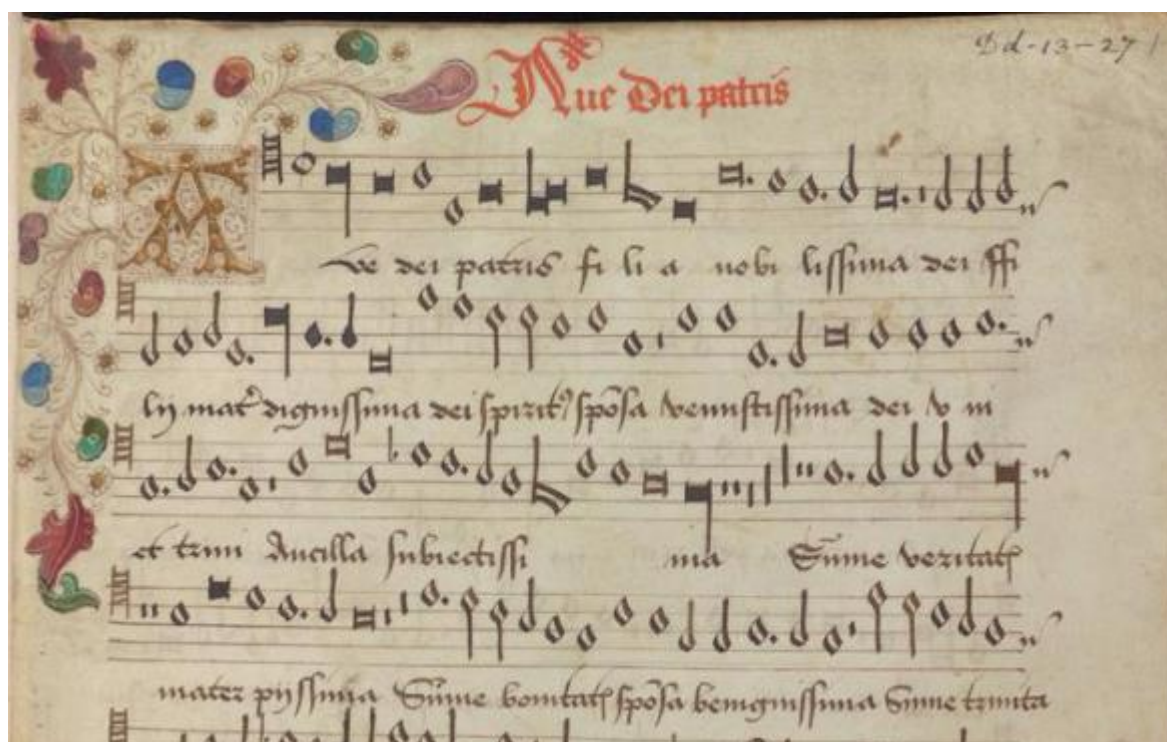 Dd-13-27
Aue Dei patris
A
ve dei patris fi li a nobi lissima dei ffi
lij mat᷒ dignissima dei spirit᷒ spõsa venustissima dei v ni
et trini Ancilla subiectissi ma Sũme veritatꝭ
mater pijssima Sũme bonitatꝭ spõsa benignissima Sũme trinita